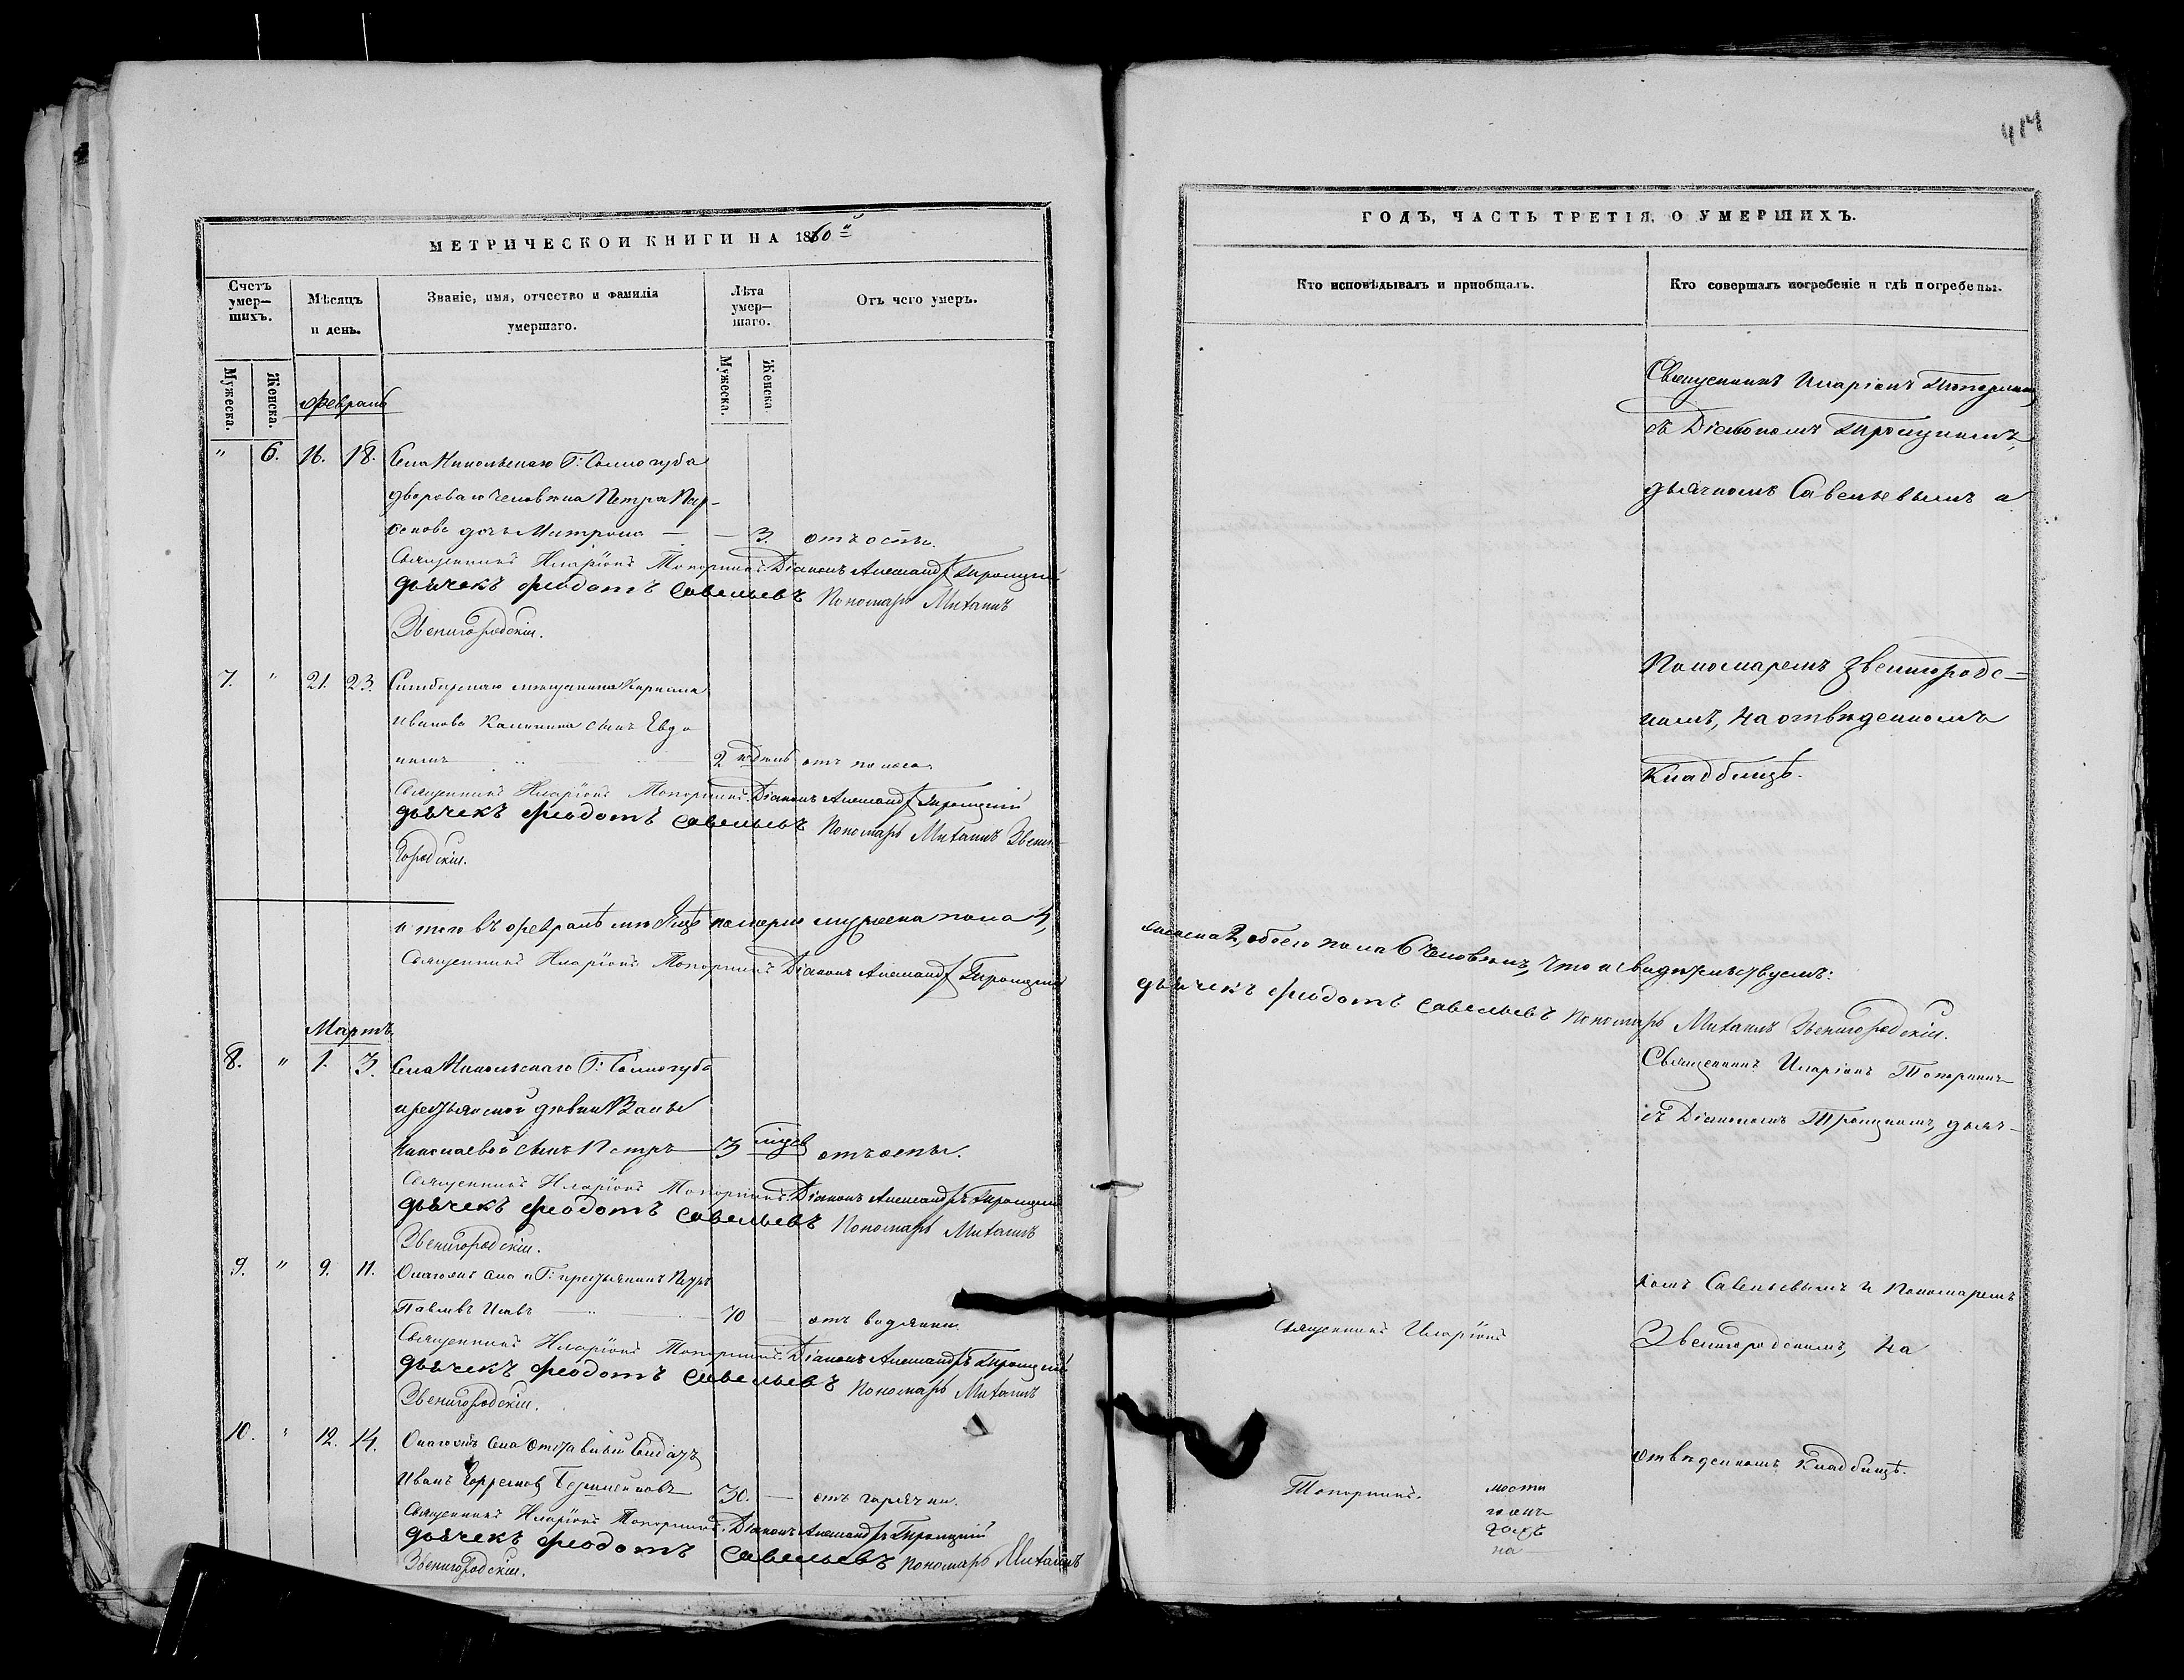 МЕТРИЧЕСКОЙ КНИГИ НА 1860й
Счетъ умер–шихъ.
Мѣсяцъ и день.
Званіе, имя, отчество и фамилія умершаго.
Лѣта умер–шаго.
Отъ чего умеръ.
Мужеска.
Женска.
Мужеска.
Женска.
Февраль
" 6. 16. 18. Села Никольскаго Г: Соллогуба
двороваго человѣка Петра
дочь Матрона — — 3. отъ оспы.
Священникъ Иларіонъ Топорнинъ. Діаконъ Александръ Троицкій
дьячекъ Феодотъ Савельевъ Пономарь Михаилъ
Звенигородскій.
7. " 21. 23. Симбирскаго мѣщанина Кирилла
Иванова Калинина сынъ Евдо
кимъ 2 недѣль отъ поноса.
Священникъ Иларіонъ Топорнинъ. Діаконъ Александръ Троицкій
дьячекъ Феодотъ Савельевъ Пономарь Михаилъ Звени–
городскій.
и того въ февралѣ мѣсяцѣ померло мужеска пола 4,
Священникъ Иларіонъ Топорнинъ Діаконъ Александръ Троицкій
Мартъ
8. " 1. 3. Села Никольскаго Г: Соллогуба
крестьянской дѣвки
Николаевой сынъ Петръ — 3 мцев отъ оспы.
Священникъ Иларіонъ Топорнинъ. Діаконъ Александръ Троицкій
дьячекъ Феодотъ Савельевъ Пономарь Михаилъ
Звенигородскій.
9. " 9. 11. Онагожъ села и Г: крестьянинъ Петръ
Павловъ 70 — отъ водянки.
Священникъ Иларіонъ Топорнинъ. Діаконъ Александръ Троицкій
дьячекъ Феодотъ Савельевъ Пономарь Михаилъ
Звенигородскій.
10. " 12. 14. Онагожъ села Отставный Солдатъ
Иванъ 30. — отъ горячки.
Священникъ Иларіонъ Топорнинъ. Діаконъ Александръ Троицкій
дьячекъ Феодотъ Савельевъ Пономарь Михаилъ
Звенигородскій.
414
ГОДЪ, ЧАСТЬ ТРЕТІЯ, О УМЕРШИХЪ.
Кто исповѣдывалъ и пріобщалъ.
Кто совершалъ погребеніе и гдѣ погребены.
Священникъ Иларіонъ Топорнинъ
съ Діакономъ Троицкимъ,
дьячкомъ Савельевымъ и
Пономаремъ Звенигородс=
кимъ, на отведенномъ
Кладбищѣ.
женска 2, обоего пола 6 человѣкъ, что и свидѣтельствуемъ:
дьячекъ Феодотъ Савельевъ Пономарь Михаилъ Звенигородскій.
Священникъ Иларіонъ Топорнинъ
съ Діакономъ Троицкимъ, дьяч–
комъ Савельевымъ и Пономаремъ
Священникъ Иларіонъ
Звенигородскимъ, на
отведенномъ Кладбищѣ.
Топорнинъ.